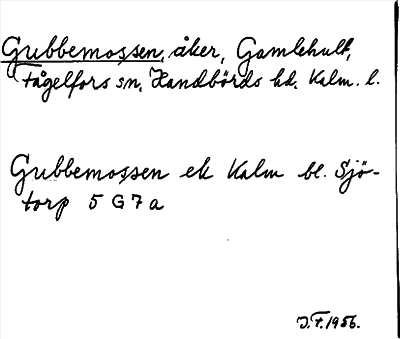 Gubbemossen, åker, Gamlehult,
Fågelfors sn, Handbörds hd. Kalm. l.
Gubbemossen ek Kalm bl. Sjö-
torp 5 G 7 a
J.F. 1956.